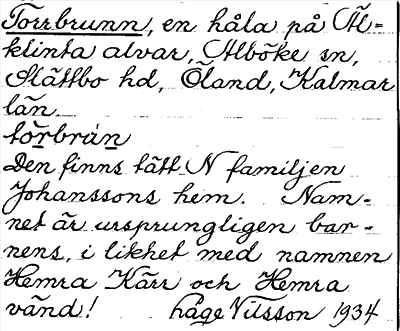 Torrbrunn, en håla på Äl-
klinta alvar, Alböke sn,
Slättbo hd, Öland, Kalmar
län.
torbrun
Den finns tätt N familjen
Johanssons hem. Nam-
net är ursprungligen bar-
nens, i likhet med namnen
Hemra Kärr och Hemra
vänd! Håge Nilsson 1934